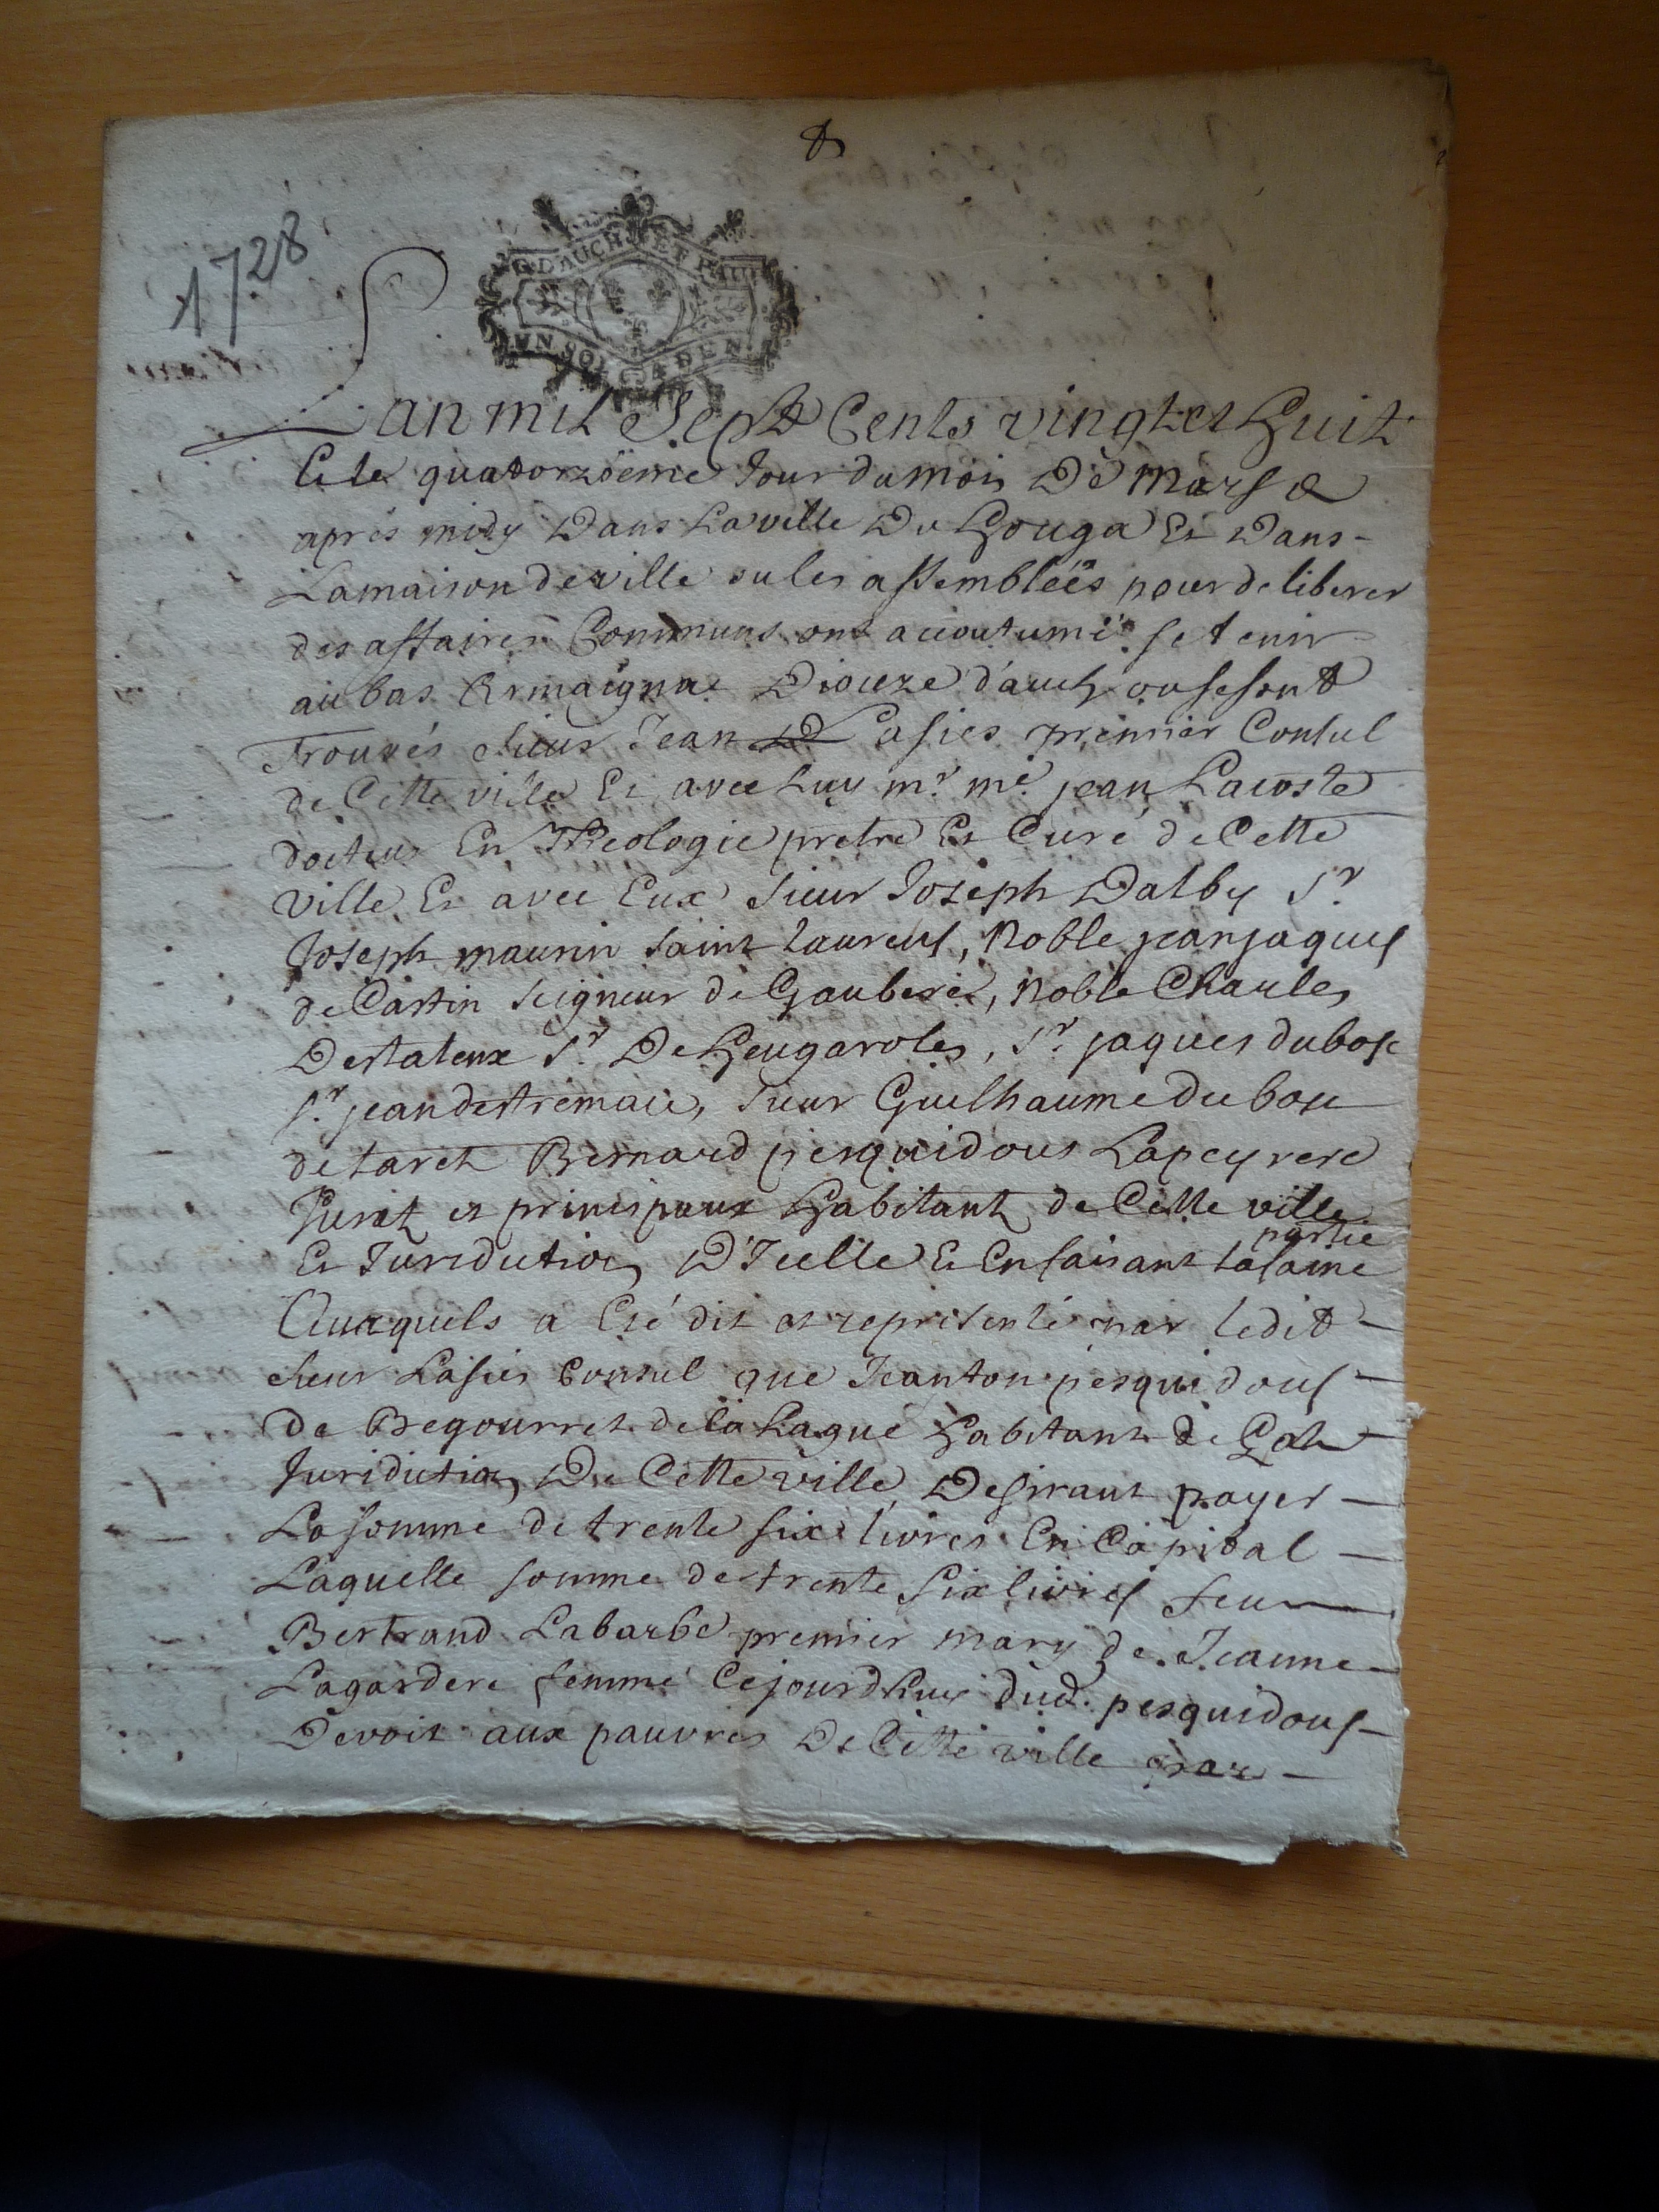 1728
G. D'AUCH ET PAU
UN SOL 4 DEN
Lan mil Sept Cents vingt et huit
Et le quatorzöeme Jour du mois De mars
apres midy Dans La ville Du houga Et Dans
La maison de ville ou les assemblées pour deliberer
des affaires Communs ont accoutumé se tenir
au bas Armaignac Dioceze d'auch ou se sont
Trouvés Sieur Jean Lasies premier Consul
de Cette ville Et avec Luy mr. me. jean Lacoste
docteur En Theologie pretre Et Curé de Cette
ville Et avec Eux Sieur Joseph Dalby Sr.
Joseph maurin saint Laurens, Noble jean jaques
de Castin seigneur de Gauberet, Noble Charles
Destaleux Sr. De heugaroles, Sr. jaques dubosc
Sr. jean destremau, sieur Guilhaume du bosc
de tareh Bernard pesquidous Lapeyrere
Jurat et principaux habitants de Cette ville
Et Juridiction D'Icelle Et En faisant la saine
partie
Auxquels a Esté dit et representé par ledit
sieur Lasies Consul que Jeanton pesquidous
De Begourret de la hague habitant de
Juridiction De Cette ville Desirant payer
La somme de trente six livres En Capital
Laquelle somme de trente six livres feu
Bertrand Labarbe premier mary de Jeanne
Lagardere femme Cejourdhuy dud. pesquidous
Devoit aux pauvres De Cette ville par